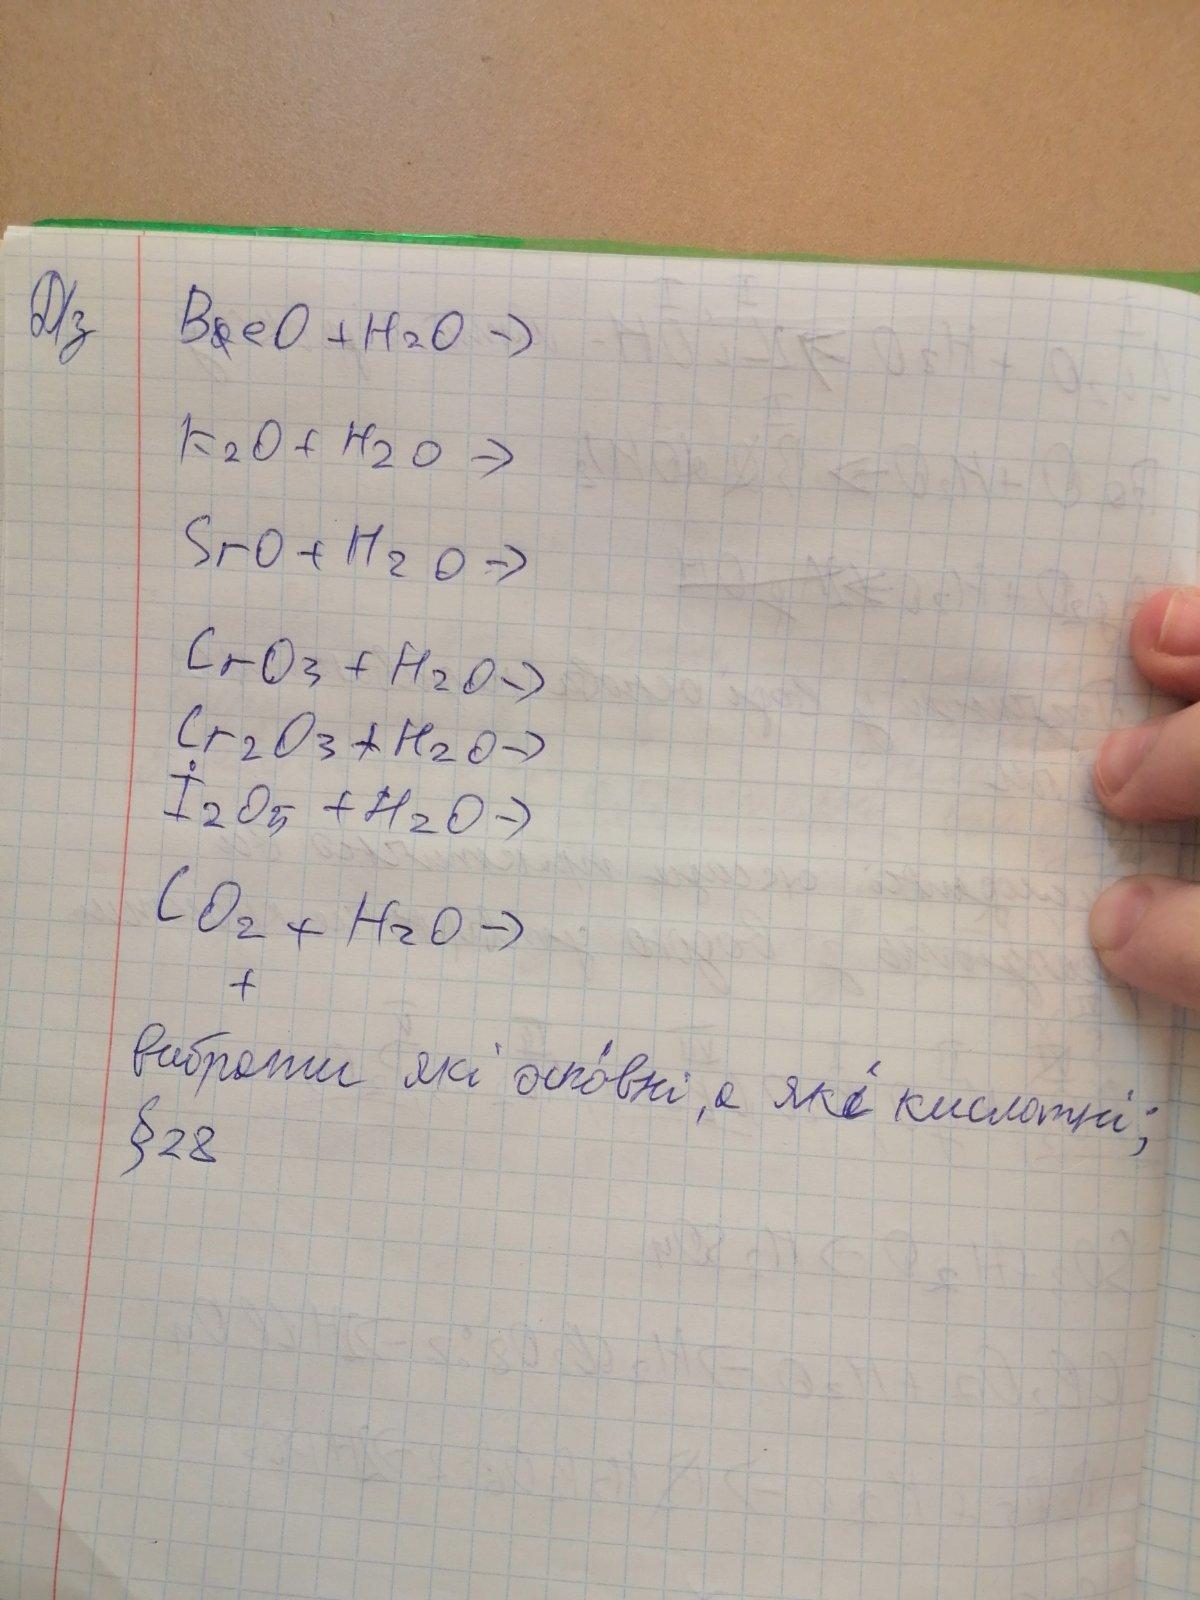 Д/з
BeO + H2O →
K2O + H2O →
SrO + H2O →
CrO3 + H2O →
Cr2O3 + H2O →
İ2O5 + H2O →
CO2 + H2O →
+
вибрати які оснóвні, а які кислотні;
§28